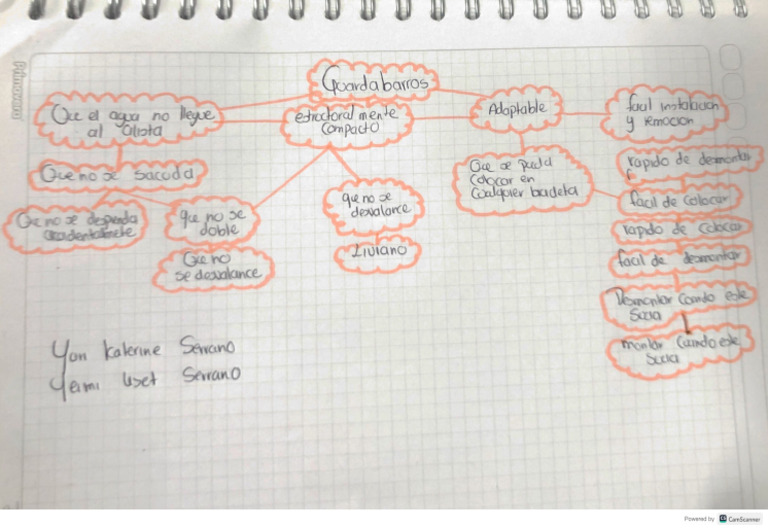 Primavera
Guardabarros
Que el agua no llegue
al ciclista
estructoral mente
compacto
Adaptable
facil instalacion
y remocion
Que no se sacuda
Que se pueda
colocar en
cualquier bicicleta
rapido de desmontar
facil de colocar
rapido de colocar
facil de desmontar
Desmontar cuando este
Sucia
montar cuando este
Sucia
Que no se desprenda
accidentalmente
que no se
doble
que no se
desvalance
Que no
se desvalance
Liviano
Yon katerine Serrano
Yeimi liset Serrano
Powered by CamScanner